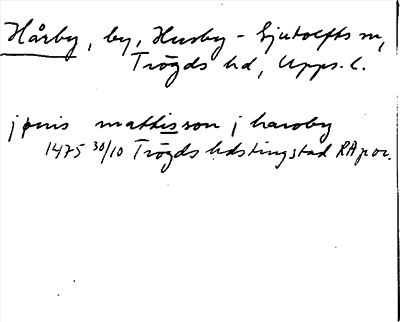 Hårby, by, Husby-Sjutolfts sn,
Trögds hd, Upps. l.
jönis mattisson j haroby
1475 30/10 Trögds hdstingstad RAp or.